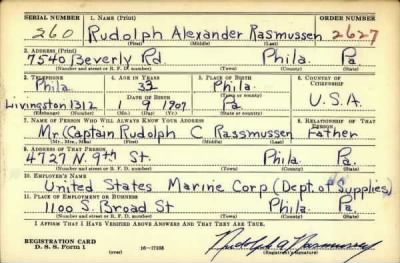 SERIAL NUMBER 1. NAME (Print) ORDER NUMBER
260 Rudolph Alexander Rasmussen 2627
(First) (Middle) (Last)
2. ADDRESS (Print)
7540 Beverly Rd. Phila. Pa
(Number and street or R. F. D. number) (Town) (County) (State)
3. TELEPHONE 4. AGE IN YEARS 5. PLACE OF BIRTH 6. COUNTRY OF CITIZENSHIP
Phila 33 Phila.
DATE OF BIRTH (Town or county)
Livingston 1312 1 9 1907 Pa U.S.A.
(Exchange) (Number) (Mo.) (Day) (Yr.) (State or country)
7. NAME OF PERSON WHO WILL ALWAYS KNOW YOUR ADDRESS 8. RELATIONSHIP OF THAT PERSON
Mr. (Captain Rudolph C Rassmussen Father
(Mr., Mrs., Miss) (First) (Middle) (Last)
9. ADDRESS OF THAT PERSON
4727 N. 9th St. Phila. Pa.
(Number and street or R. F. D. number) (Town) (County) (State)
10. EMPLOYER'S NAME
United States Marine Corp (Dept. of Supplies)
11. PLACE OF EMPLOYMENT OR BUSINESS
1100 S. Broad St Phila. Pa.
(Number and street or R. F. D. number) (Town) (County) (State)
I AFFIRM THAT I HAVE VERIFIED ABOVE ANSWERS AND THAT THEY ARE TRUE.
REGISTRATION CARD
D. S. S. Form 1 (over) Rudolph A Rasmussen
(Registrant's signature)